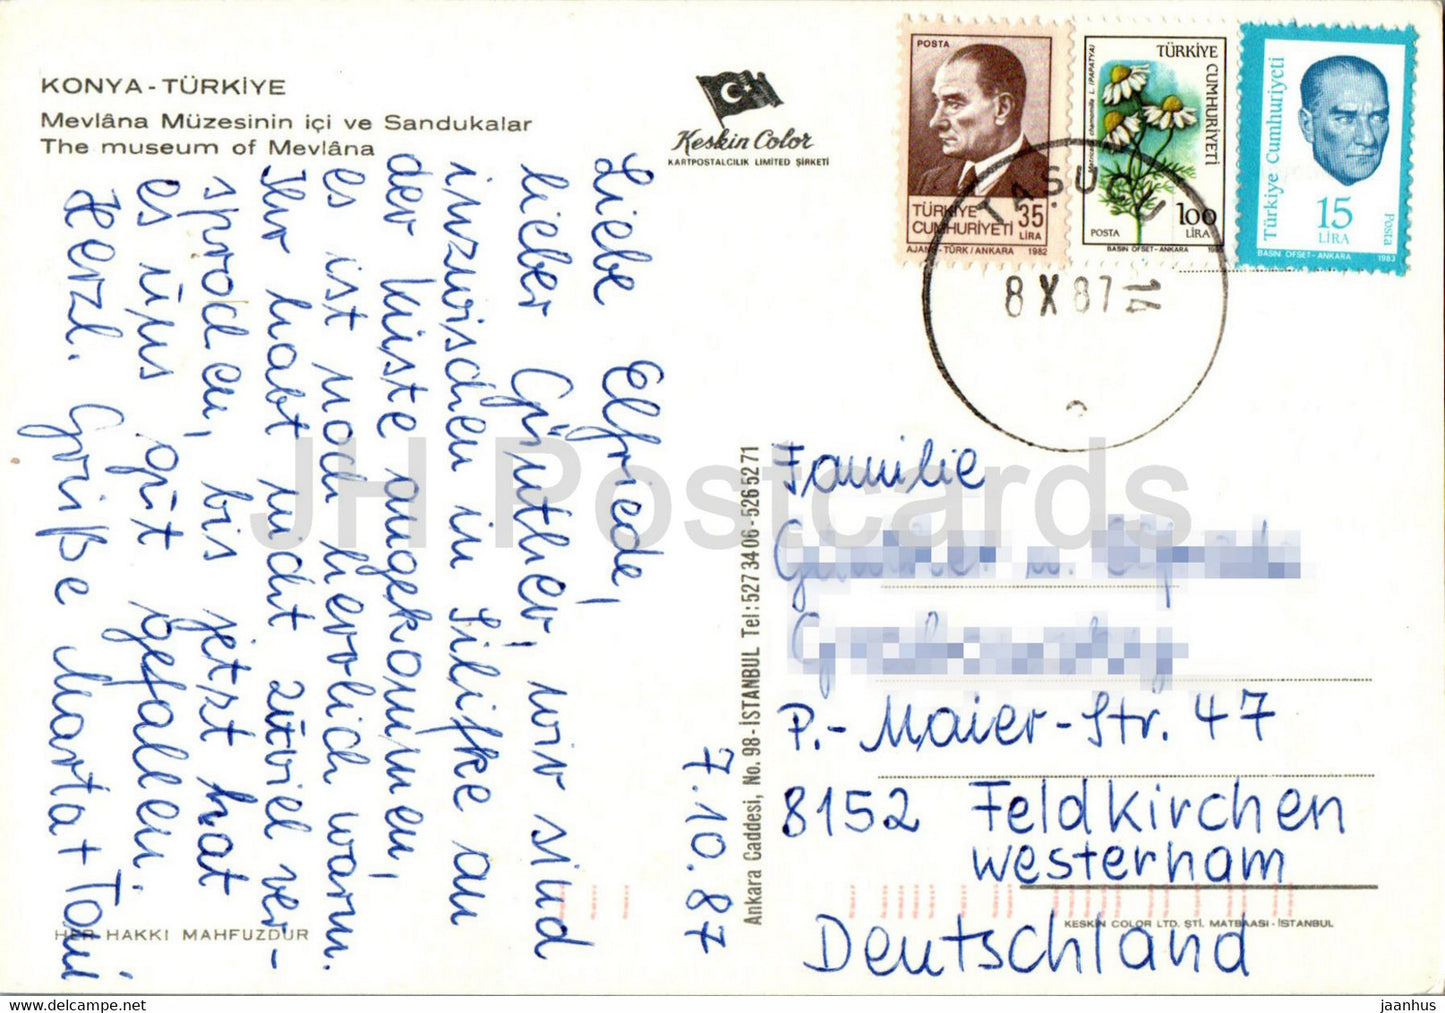 KONYA - TÜRKİYE
Mevlâna Müzesinin içi ve Sandukalar
The museum of Mevlâna
Keskin Color
KARTPOSTALCILIK LIMITED ŞİRKETİ
POSTA
TÜRKİYE
CUMHURİYETİ
35
LİRA
AJANS-TÜRK/ANKARA 1982
Matricaria chamomilla L. (PAPATYA)
TÜRKİYE CUMHURİYETİ
100
LİRA
POSTA
BASIN OFSET-ANKARA
Türkiye Cumhuriyeti
15
LİRA
Posta
BASIN OFSET-ANKARA 1983
TAŞUCU
8 X 87 14
7.10.87
Liebe Elfriede,
lieber Günther, wir sind
inzwischen in Silifke an
der Küste angekommen,
es ist noch herrlich warm.
Ihr habt nicht zuviel ver-
sprochen, bis jetzt hat
es uns gut gefallen.
Herzl. Grüße Marta + Toni
Ankara Caddesi, No. 98 - İSTANBUL Tel: 527 34 06 - 526 52 71
Familie
P.-Maier-Str. 47
8152 Feldkirchen
Westerham
Deutschland
HER HAKKI MAHFUZDUR
KESKİN COLOR LTD. ŞTİ. MATBAASI - İSTANBUL
JH Postcards
jaanhus